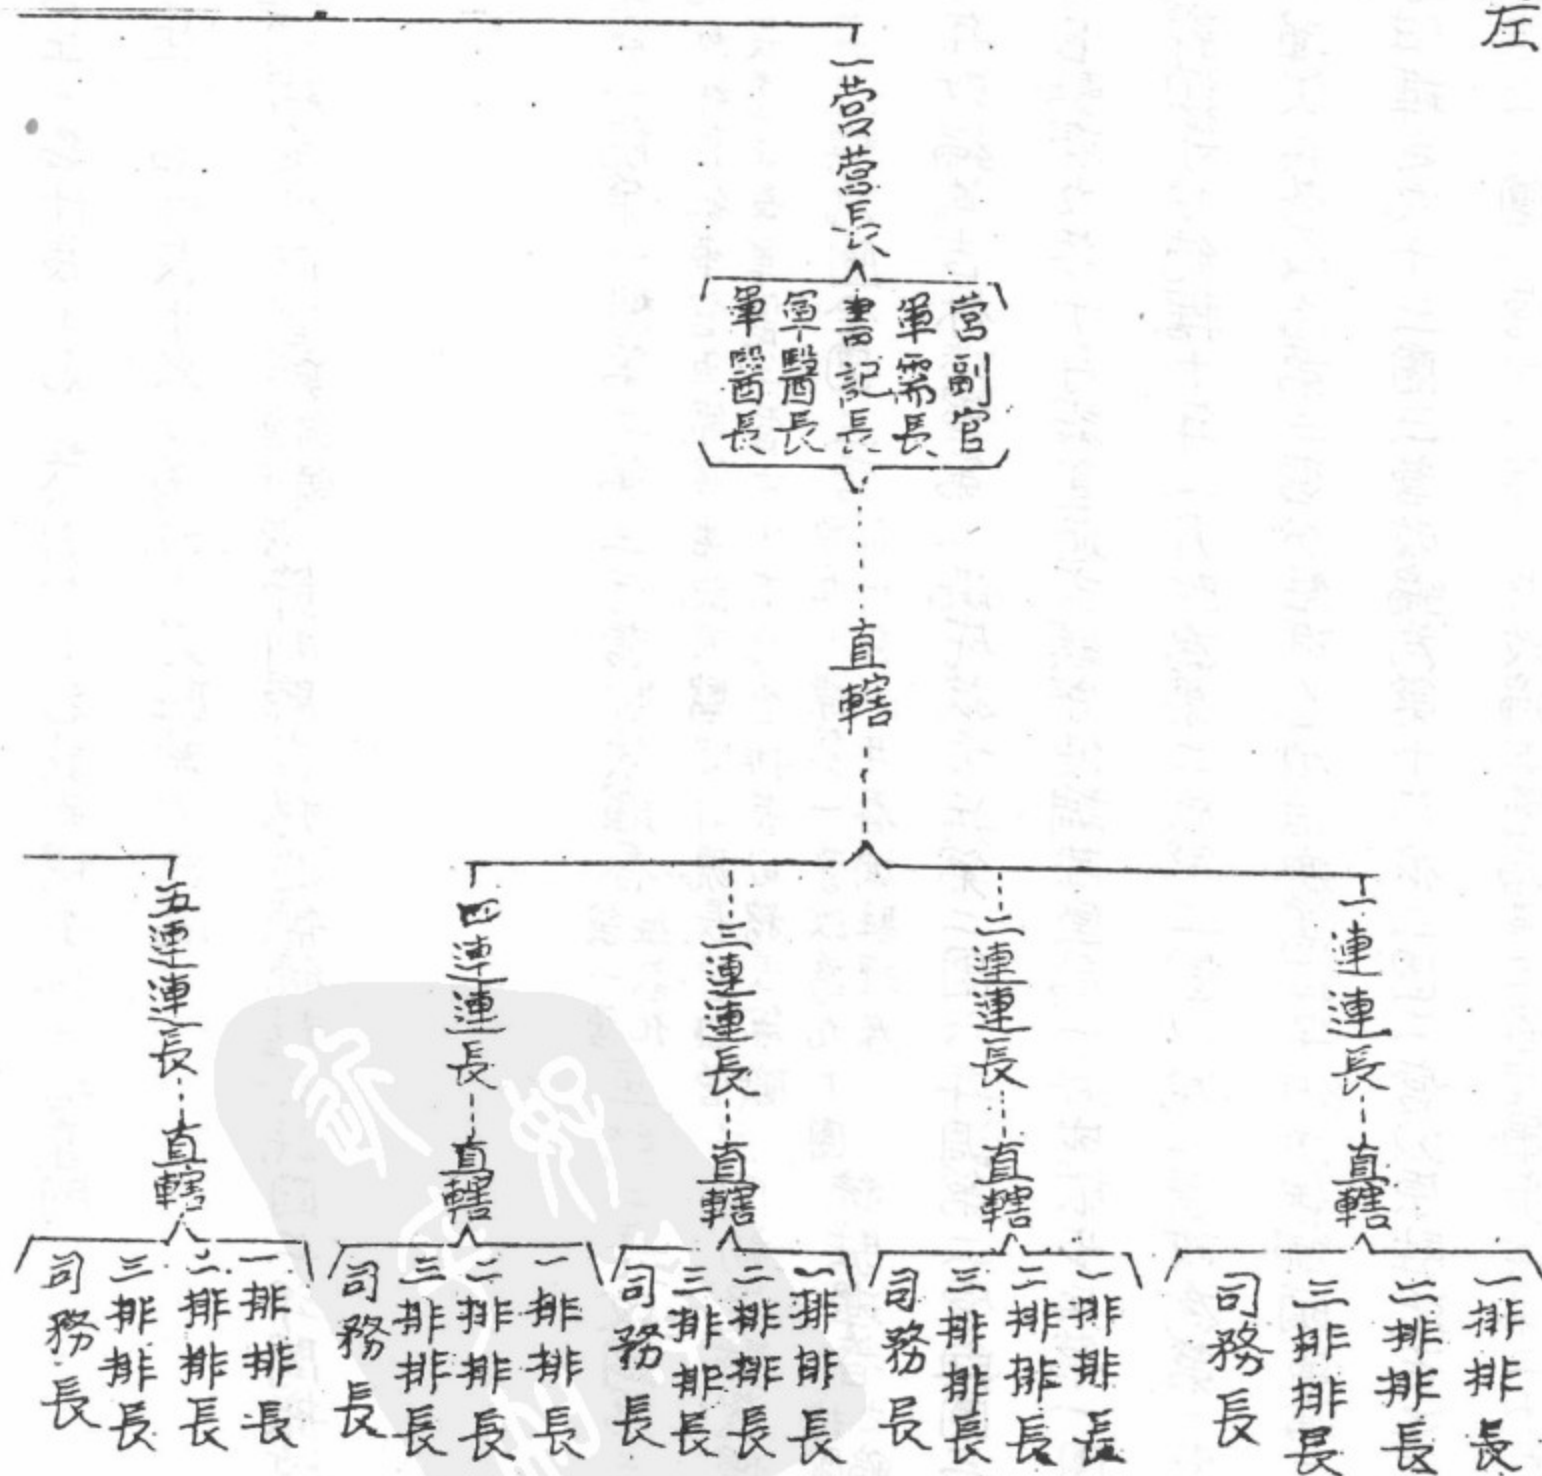 左
一营营長
营副官
軍需長
書記長
軍醫長
軍醫長
直轄
一連連長
直轄
一排排長
二排排長
三排排長
司務長
二連連長
直轄
一排排長
二排排長
三排排長
司務長
三連連長
直轄
一排排長
二排排長
三排排長
司務長
四連連長
直轄
一排排長
二排排長
三排排長
司務長
五連連長
直轄
一排排長
二排排長
三排排長
司務長